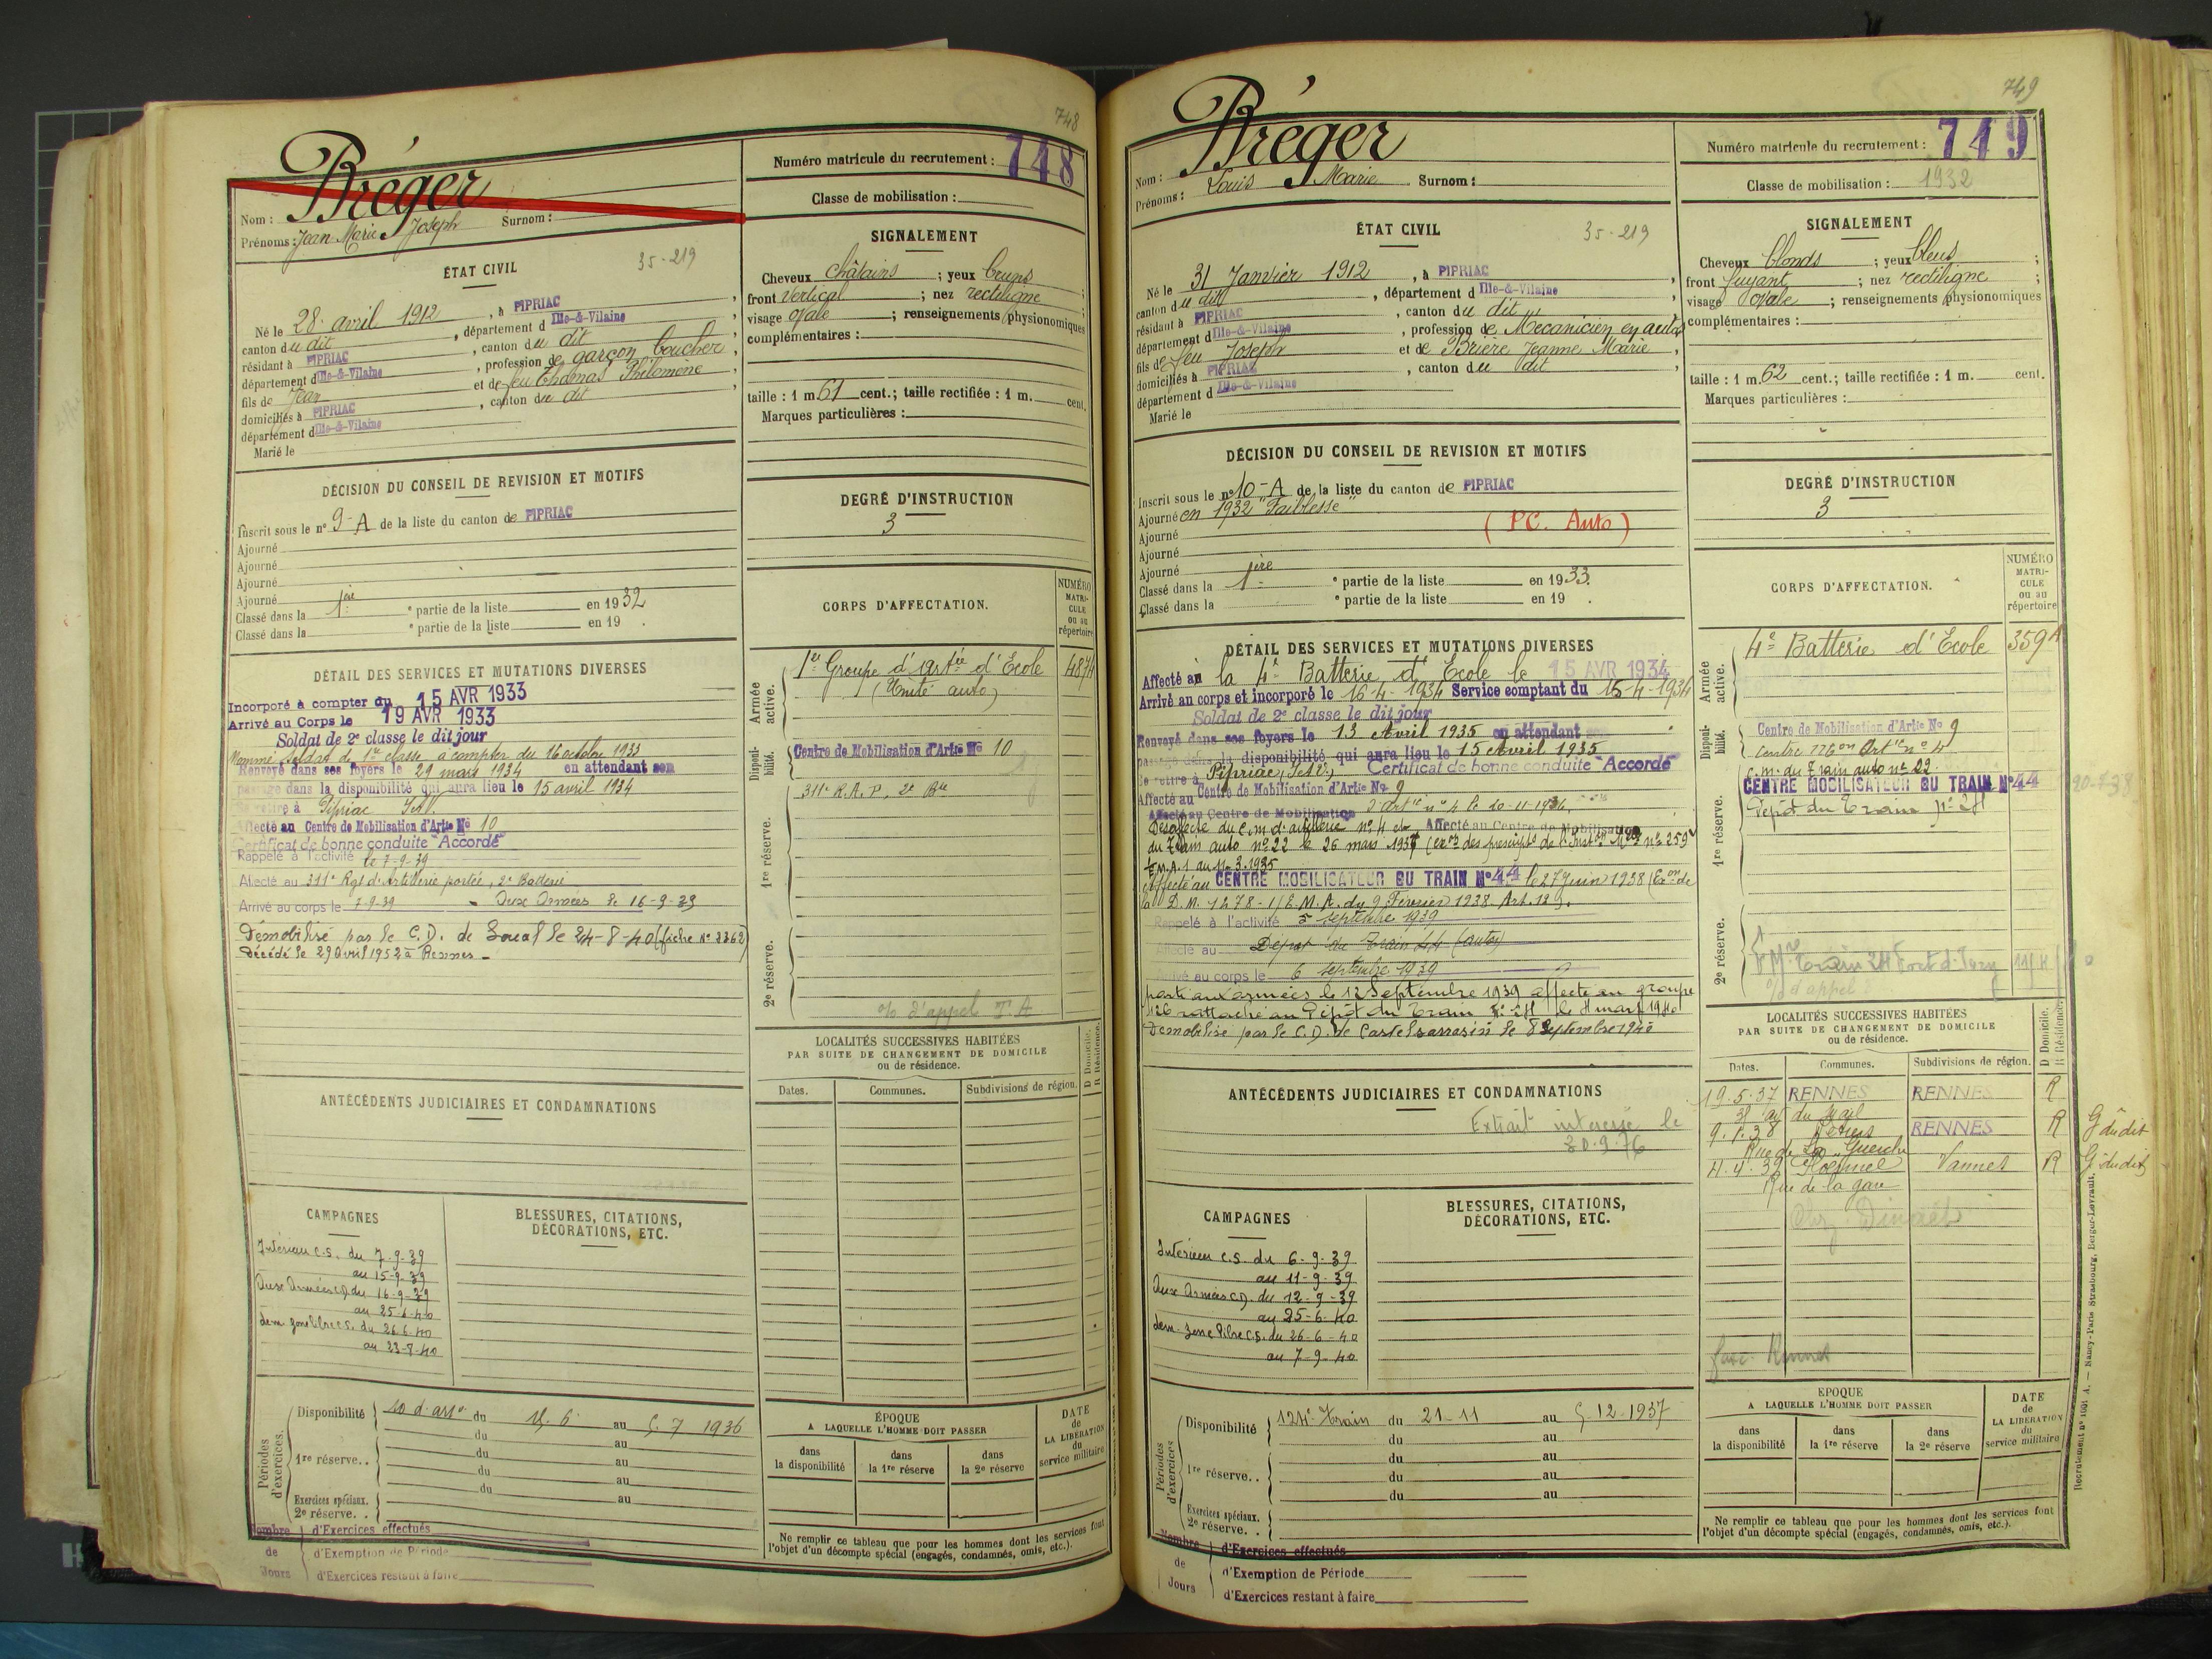 748
Bréger
Nom :
Prénoms : Jean Marie Joseph Surnom :
Numéro matricule du recrutement : 748
Classe de mobilisation :
ÉTAT CIVIL
35-219
Né le 28 avril 1912, à PIPRIAC,
canton du dit, département d Ille-&-Vilaine,
résidant à PIPRIAC, canton du dit,
département d Ille-&-Vilaine, profession de garçon boucher,
fils de Jean et de feu Philomène,
domiciliés à PIPRIAC, canton du dit
département d Ille-&-Vilaine
Marié le
SIGNALEMENT
Cheveux châtains ; yeux bruns ;
front vertical ; nez rectiligne ;
visage ovale ; renseignements physionomiques
complémentaires :
taille : 1 m. 61 cent. ; taille rectifiée : 1 m. cent.
Marques particulières :
DÉCISION DU CONSEIL DE REVISION ET MOTIFS
Inscrit sous le n° 9-A de la liste du canton de PIPRIAC
Ajourné
Ajourné
Ajourné
Ajourné
Classé dans la 1ère partie de la liste en 1932
Classé dans la e partie de la liste en 19 .
DEGRÉ D'INSTRUCTION
3
DÉTAIL DES SERVICES ET MUTATIONS DIVERSES
Incorporé à compter du 15 AVR 1933
Arrivé au Corps le 19 AVR 1933
Soldat de 2e classe le dit jour
Nommé soldat de 1re classe à compter du 16 octobre 1933
Renvoyé dans ses foyers le 29 mars 1934 en attendant son
passage dans la disponibilité qui aura lieu le 15 avril 1934
Se retire à Pipriac I et V.
Affecté au Centre de Mobilisation d'Artie No 10
Certificat de bonne conduite "Accordé"
Rappelé à l'activité le 7-9-39
Affecté au 311e Rgt d'Artillerie portée, 2e Batterie
Arrivé au corps le 7-9-39 - Aux Armées le 16-9-39
Démobilisé par le C.D. de Soual le 24-8-40 (fiche No 3362)
Décédé le 29 avril 1952 à Rennes -
CORPS D'AFFECTATION.
NUMÉRO MATRICULE ou au répertoire
Armée active.
1er Groupe d'Artie d'Ecole
(Unité auto)
Disponibilité.
Centre de Mobilisation d'Artie No 10
1re réserve.
311e R.A.P. 2e Bie
2e réserve.
% d'appel T.A
LOCALITÉS SUCCESSIVES HABITÉES
PAR SUITE DE CHANGEMENT DE DOMICILE
ou de résidence.
D Domicile.
R Résidence.
Dates. Communes. Subdivisions de région.
ANTÉCÉDENTS JUDICIAIRES ET CONDAMNATIONS
CAMPAGNES
Intérieur C.S. du 7-9-39
au 15-9-39
Aux Armées C.D. du 16-9-39
au 25-6-40
dém. zone libre C.S. du 26-6-40
au 23-8-40
BLESSURES, CITATIONS,
DÉCORATIONS, ETC.
Périodes d'exercices.
Disponibilité du au 7 1936
du au
1re réserve.. du au
du au
du au
Exercices spéciaux.
2e réserve. .
Nombre de Jours
d'Exercices effectués
d'Exemption de Période
d'Exercices restant à faire
ÉPOQUE
A LAQUELLE L'HOMME DOIT PASSER
dans la disponibilité
dans la 1re réserve
dans la 2e réserve
DATE de LA LIBÉRATION du service militaire
Ne remplir ce tableau que pour les hommes dont les services font
l'objet d'un décompte spécial (engagés, condamnés, omis, etc.).
749
Bréger
Nom :
Prénoms : Louis Marie Surnom :
Numéro matricule du recrutement : 749
Classe de mobilisation : 1932
ÉTAT CIVIL
35-219
Né le 31 Janvier 1912, à PIPRIAC,
canton du dit, département d Ille-&-Vilaine,
résidant à PIPRIAC, canton du dit,
département d Ille-&-Vilaine, profession de Mécanicien en autos,
fils de feu Joseph et de Brière Jeanne Marie,
domiciliés à PIPRIAC, canton du dit,
département d Ille-&-Vilaine
Marié le
SIGNALEMENT
Cheveux blonds ; yeux bleus ;
front fuyant ; nez rectiligne ;
visage ovale ; renseignements physionomiques
complémentaires :
taille : 1 m. 62 cent. ; taille rectifiée : 1 m. cent.
Marques particulières :
DÉCISION DU CONSEIL DE REVISION ET MOTIFS
Inscrit sous le n° 10-A de la liste du canton de PIPRIAC
Ajourné en 1932 "Faiblesse"
(PC. Auto)
Ajourné
Ajourné
Ajourné
Classé dans la 1ère partie de la liste en 1933.
Classé dans la e partie de la liste en 19 .
DEGRÉ D'INSTRUCTION
3
DÉTAIL DES SERVICES ET MUTATIONS DIVERSES
Affecté au la 4e Batterie d'Ecole le 15 AVR 1934
Arrivé au corps et incorporé le 16-4-1934 Service comptant du 15-4-1934
Soldat de 2e classe le dit jour
Renvoyé dans ses foyers le 13 Avril 1935 en attendant son
passage dans la disponibilité qui aura lieu le 15 Avril 1935
Se retire à Pipriac, I et V., Certificat de bonne conduite "Accordé"
Affecté au Centre de Mobilisation d'Artie No 9
Affecté au Centre de Mobilisation d'artie n° 4 le 20-11-1936
Désaffecté du C.M. d'artillerie n° 4 et Affecté au Centre de Mobilisation
du Train auto n° 22 le 26 mars 1937
E.M.A. 1 du 11-3-1935
Affecté au CENTRE MOBILISATEUR DU TRAIN No 44 le 27 Juin 1938 (Exon de
la D.M. 1278-1/E.M.A. du 9 Février 1938 Art. 12).
Rappelé à l'activité 5 septembre 1939
Affecté au Dépôt du Train 44 (autos)
Arrivé au corps le 6 septembre 1939
parti aux armées le 12 Septembre 1939 affecté au groupe
rattaché au Dépôt du Train
Démobilisé par le C.D. de Castelsarrasin le 8 Septembre 1940
CORPS D'AFFECTATION.
NUMÉRO MATRICULE ou au répertoire
Armée active.
4e Batterie d'Ecole 359 A
Disponibilité.
Centre de Mobilisation d'Artie No 9
Centre Mon Artie n° 4
C.M. du Train auto n° 22.
CENTRE MOBILISATEUR DU TRAIN No 44
1re réserve.
Dépôt du Train
2e réserve.
% d'appel
LOCALITÉS SUCCESSIVES HABITÉES
PAR SUITE DE CHANGEMENT DE DOMICILE
ou de résidence.
D Domicile.
R Résidence.
Dates. Communes. Subdivisions de région.
19.5.37 RENNES RENNES R
du Mail
RENNES R G du dit
Rue de La Guerche
Ploërmel Vannes R G du dit
Rue de la gare
ANTÉCÉDENTS JUDICIAIRES ET CONDAMNATIONS
Extrait intéressé le
30.9.76
CAMPAGNES
Intérieur C.S. du 6-9-39
au 11-9-39
Aux Armées C.D. du 12-9-39
au 25-6-40
dém. zone libre C.S. du 26-6-40
au 7-9-40
BLESSURES, CITATIONS,
DÉCORATIONS, ETC.
Périodes d'exercices
Disponibilité Train du 21-11 au 5 12-1937
du au
1re réserve.. du au
du au
du au
Exercices spéciaux.
2e réserve. .
Nombre de Jours
d'Exercices effectués
d'Exemption de Période
d'Exercices restant à faire
EPOQUE
A LAQUELLE L'HOMME DOIT PASSER
dans la disponibilité
dans la 1re réserve
dans la 2e réserve
DATE de LA LIBÉRATION du service militaire
Ne remplir ce tableau que pour les hommes dont les services font
l'objet d'un décompte spécial (engagés, condamnés, omis, etc.).
Nancy-Paris Strasbourg, Berger-Levrault.